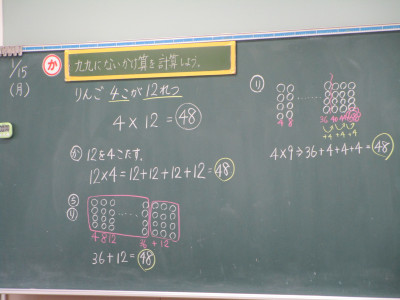 1/15
(月)
か 九九にないかけ算を計算しよう。
りんご 4こが12れつ
4×12=48
か 12を4こたす。
12×4=12+12+12+12=48
4 8 12 36 + 12
36+12=48
り
4 8 36 40 44 48
+4 +4 +4
4×9→36+4+4+4=48